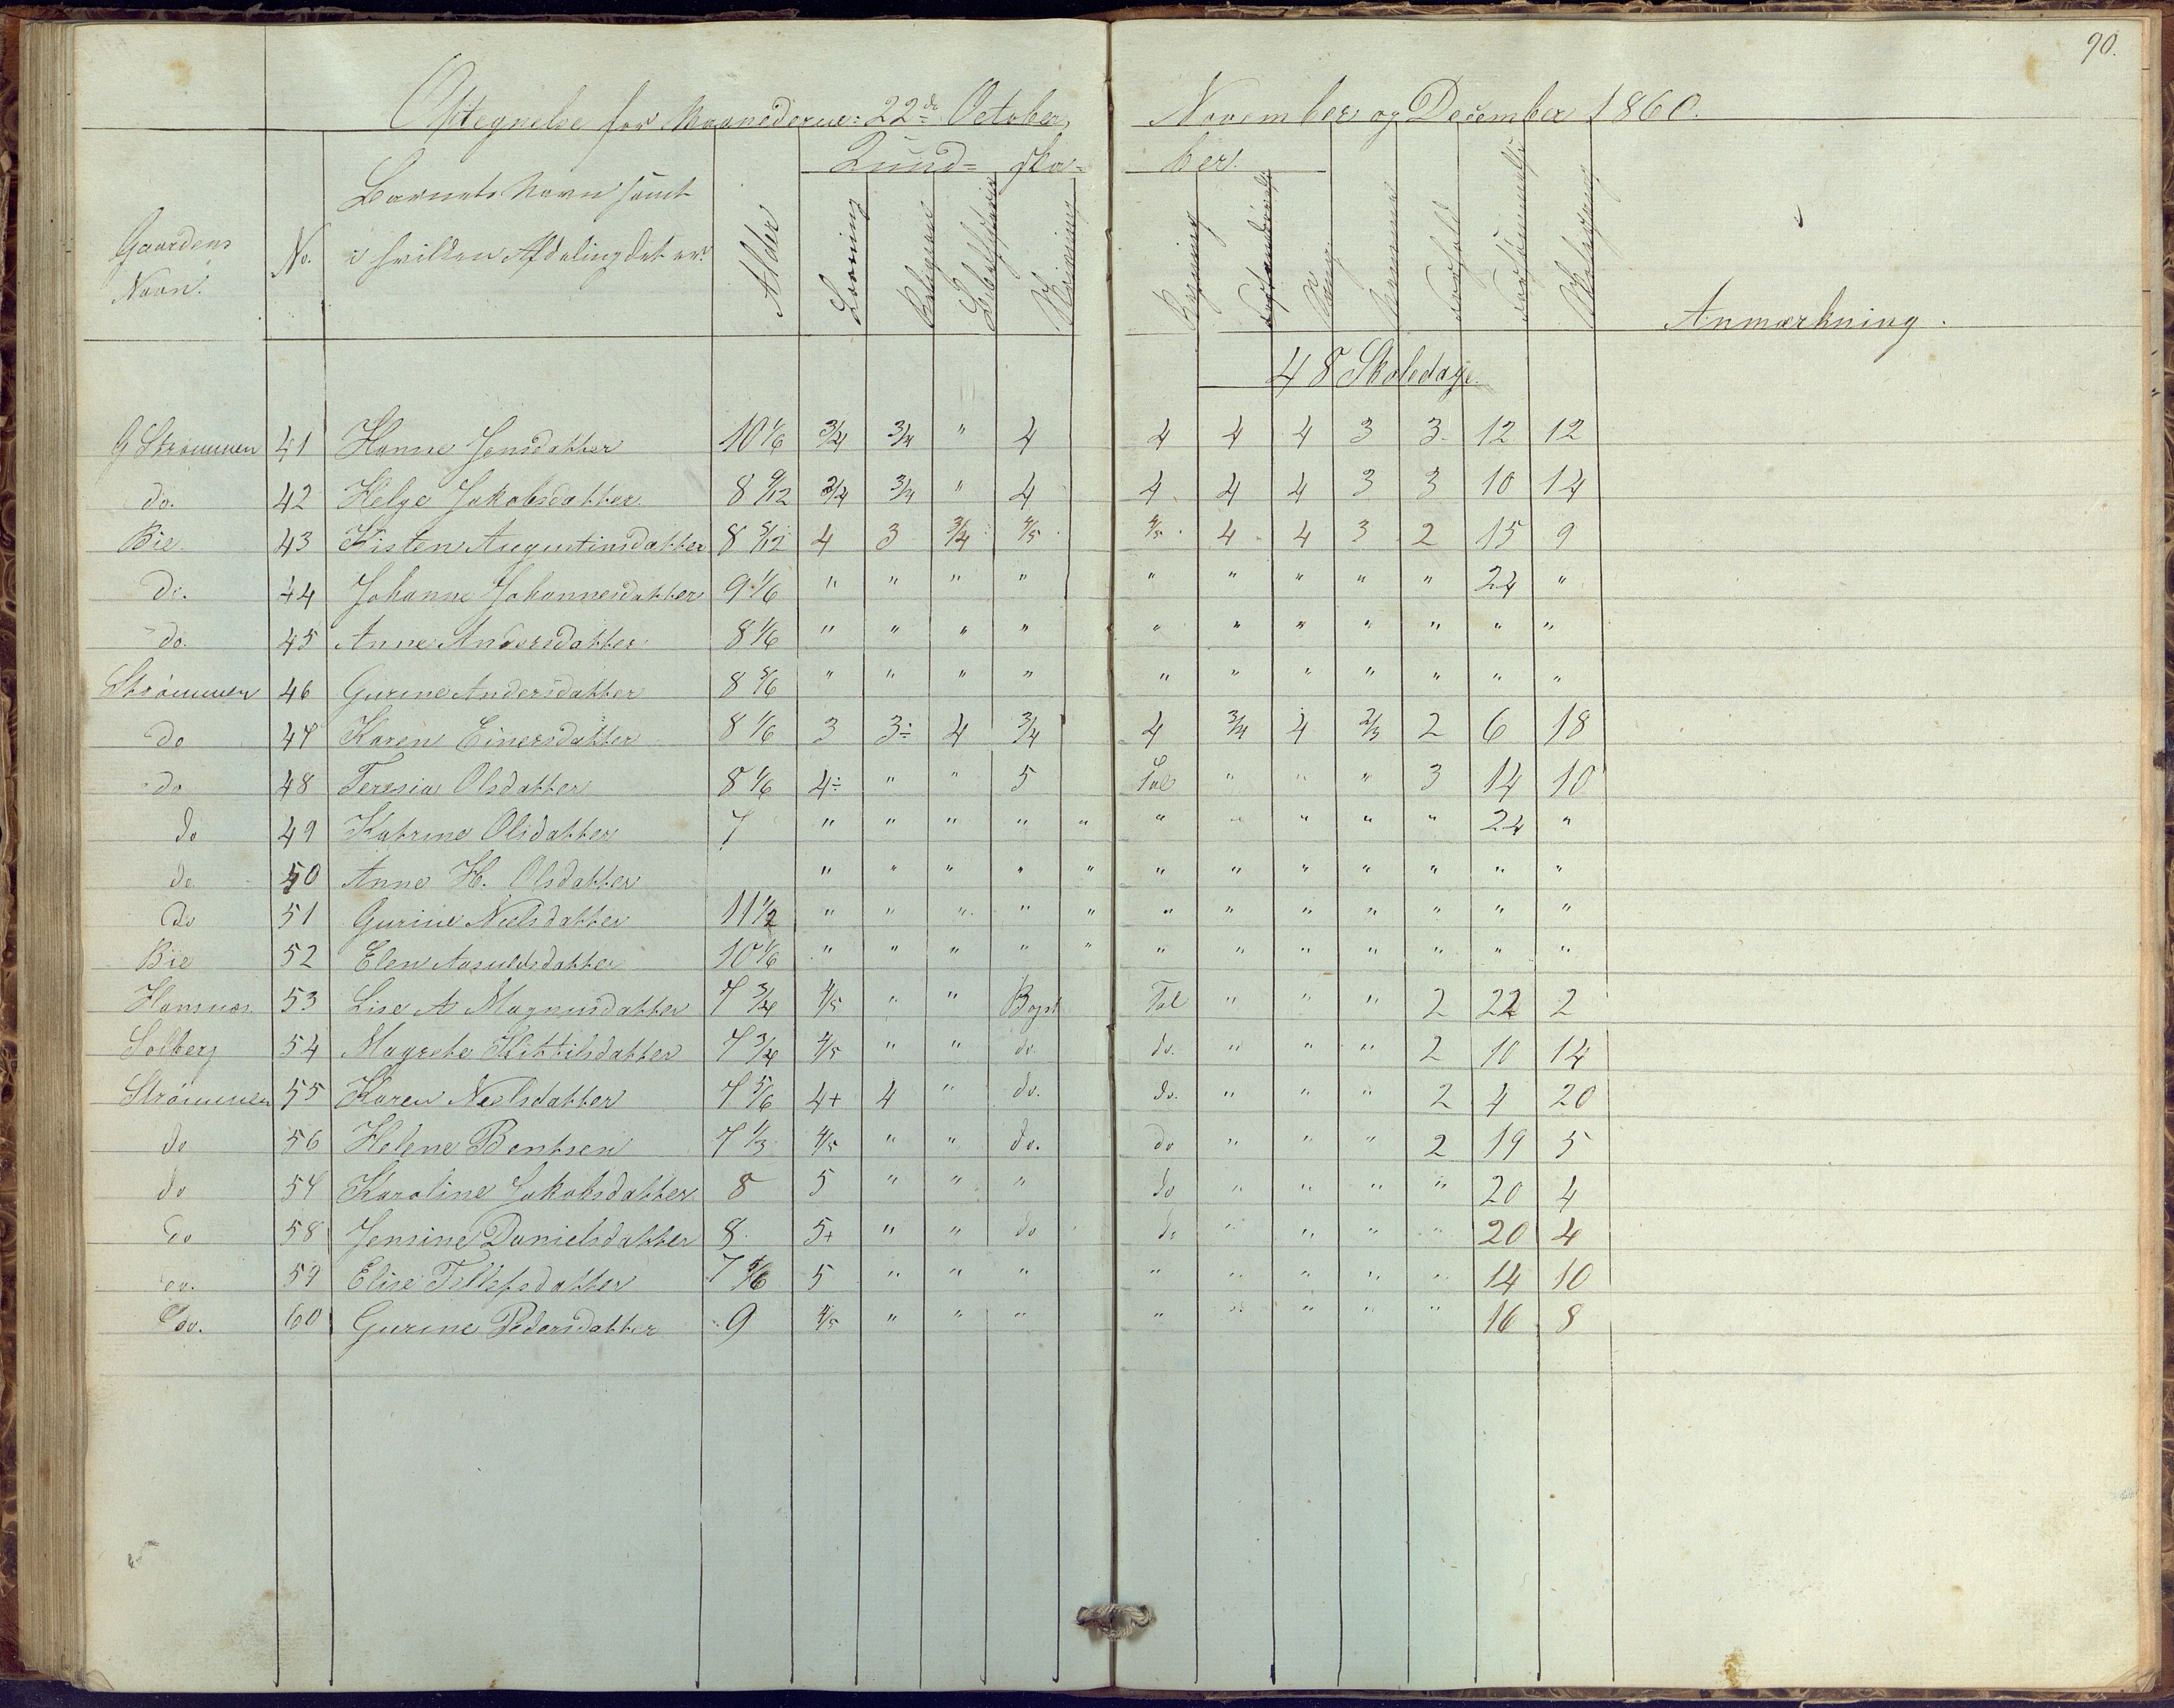 90.
Optegnelse for Maanederne: 22de October, November og December 1860.
Kund= ska= ber.
Gaardens Navn.
No.
Barnets Navn samt i hvilken Afdeling det er.
Alder
Læsning
Religion
Bibelhistorie
Skrivning
Regning
Sang.
Forhold
Forsømmelse
Anmærkning.
48 Skoledage.
G Strømmen 41 Hanne Jensdatter 10 1/6 3/4 3/4 " 4 4 4 4 3 3 12 12
do. 42 Helge Jakobsdatter 8 9/12 3/4 3/4 " 4 4 4 4 3 3 10 14
Bie 43 Kisten Augustinsdatter 8 5/12 4 3 3/4 4/5 4/5 4 4 3 2 15 9
do. 44 Johanne Johannesdatter 9 1/6 " " " " " " " " " 24 "
do. 45 Anne Andersdatter 8 1/6 " " " " " " " " " " "
Strømmen 46 Gurine Andersdatter 8 5/6 " " " " " " " " " " "
do 47 Karen Einersdatter 8 1/6 3 3÷ 4 3/4 4 3/4 4 2/3 2 6 18
do 48 Teresia Olsdatter 8 1/6 4÷ " " 5 Tal " " " 3 14 10
do 49 Katrine Olsdatter 7 " " " " " " " " " " 24 "
do 50 Anne H. Olsdatter " " " " " " " " " " " "
do 51 Gurine Neelsdatter 11 1/2 " " " " " " " " " " " "
Bie 52 Elen Aasuldsdatter 10 1/6 " " " " " " " " " " " "
Hansnæs 53 Lise A Magnusdatter 7 3/4 4/5 " " Bogst Tal " " " 2 22 2
Solberg 54 Magrete Kittilsdatter 7 3/4 4/5 " " do. do. " " " 2 10 14
Strømmen 55 Karen Neelsdatter 7 5/6 4+ 4 " do. do. " " " 2 4 20
do 56 Helene Bentsen 7 1/3 4/5 " " do. do " " " 2 19 5
do 57 Karoline Jakobsdatter 8 5 " " " do " " " " 20 4
do 58 Jensine Danielsdatter 8 5+ " " do do " " " " 20 4
do. 59 Elise Tellefsdatter 7 5/6 5 " " " " " " " " 14 10
do. 60 Gurine Pedersdatter 9 4/5 " " " " " " " " 16 8